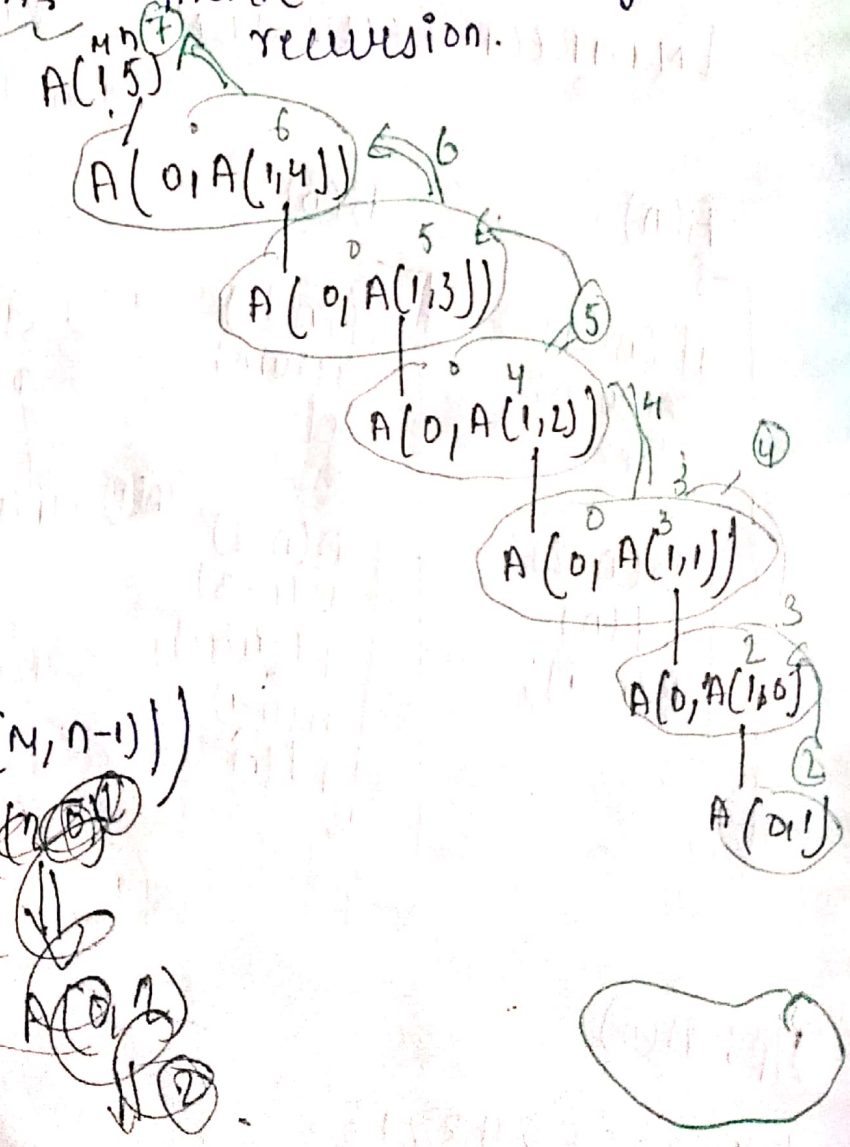 recursion.
M n 7
A(1,5)
6
A(0, A(1,4))
6
0 5
A(0, A(1,3))
5
0 4
A(0, A(1,2))
4
4
3
0 3
A(0, A(1,1))
3
2
A(0, A(1,0)
M, n-1)))
2
A(0,1)
A(0, 2)
2